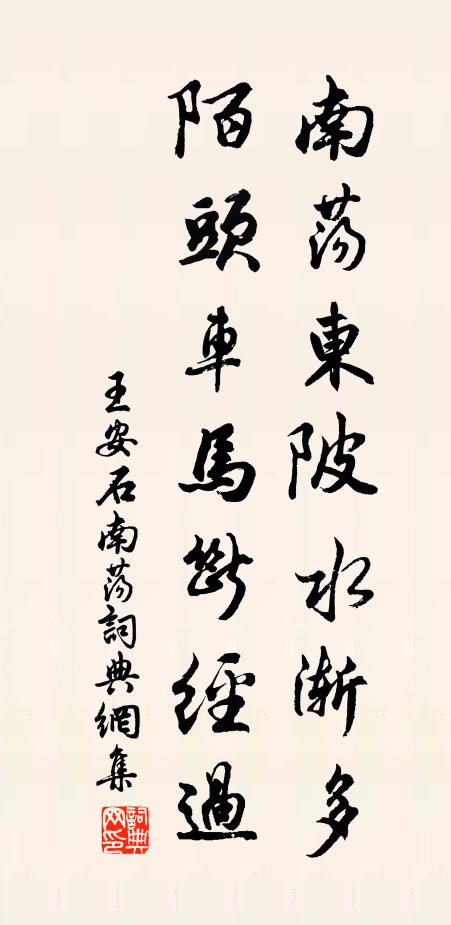 南蕩東陂水漸多
陌頭車馬斷經過
王安石南蕩詞典網集
詞典網印